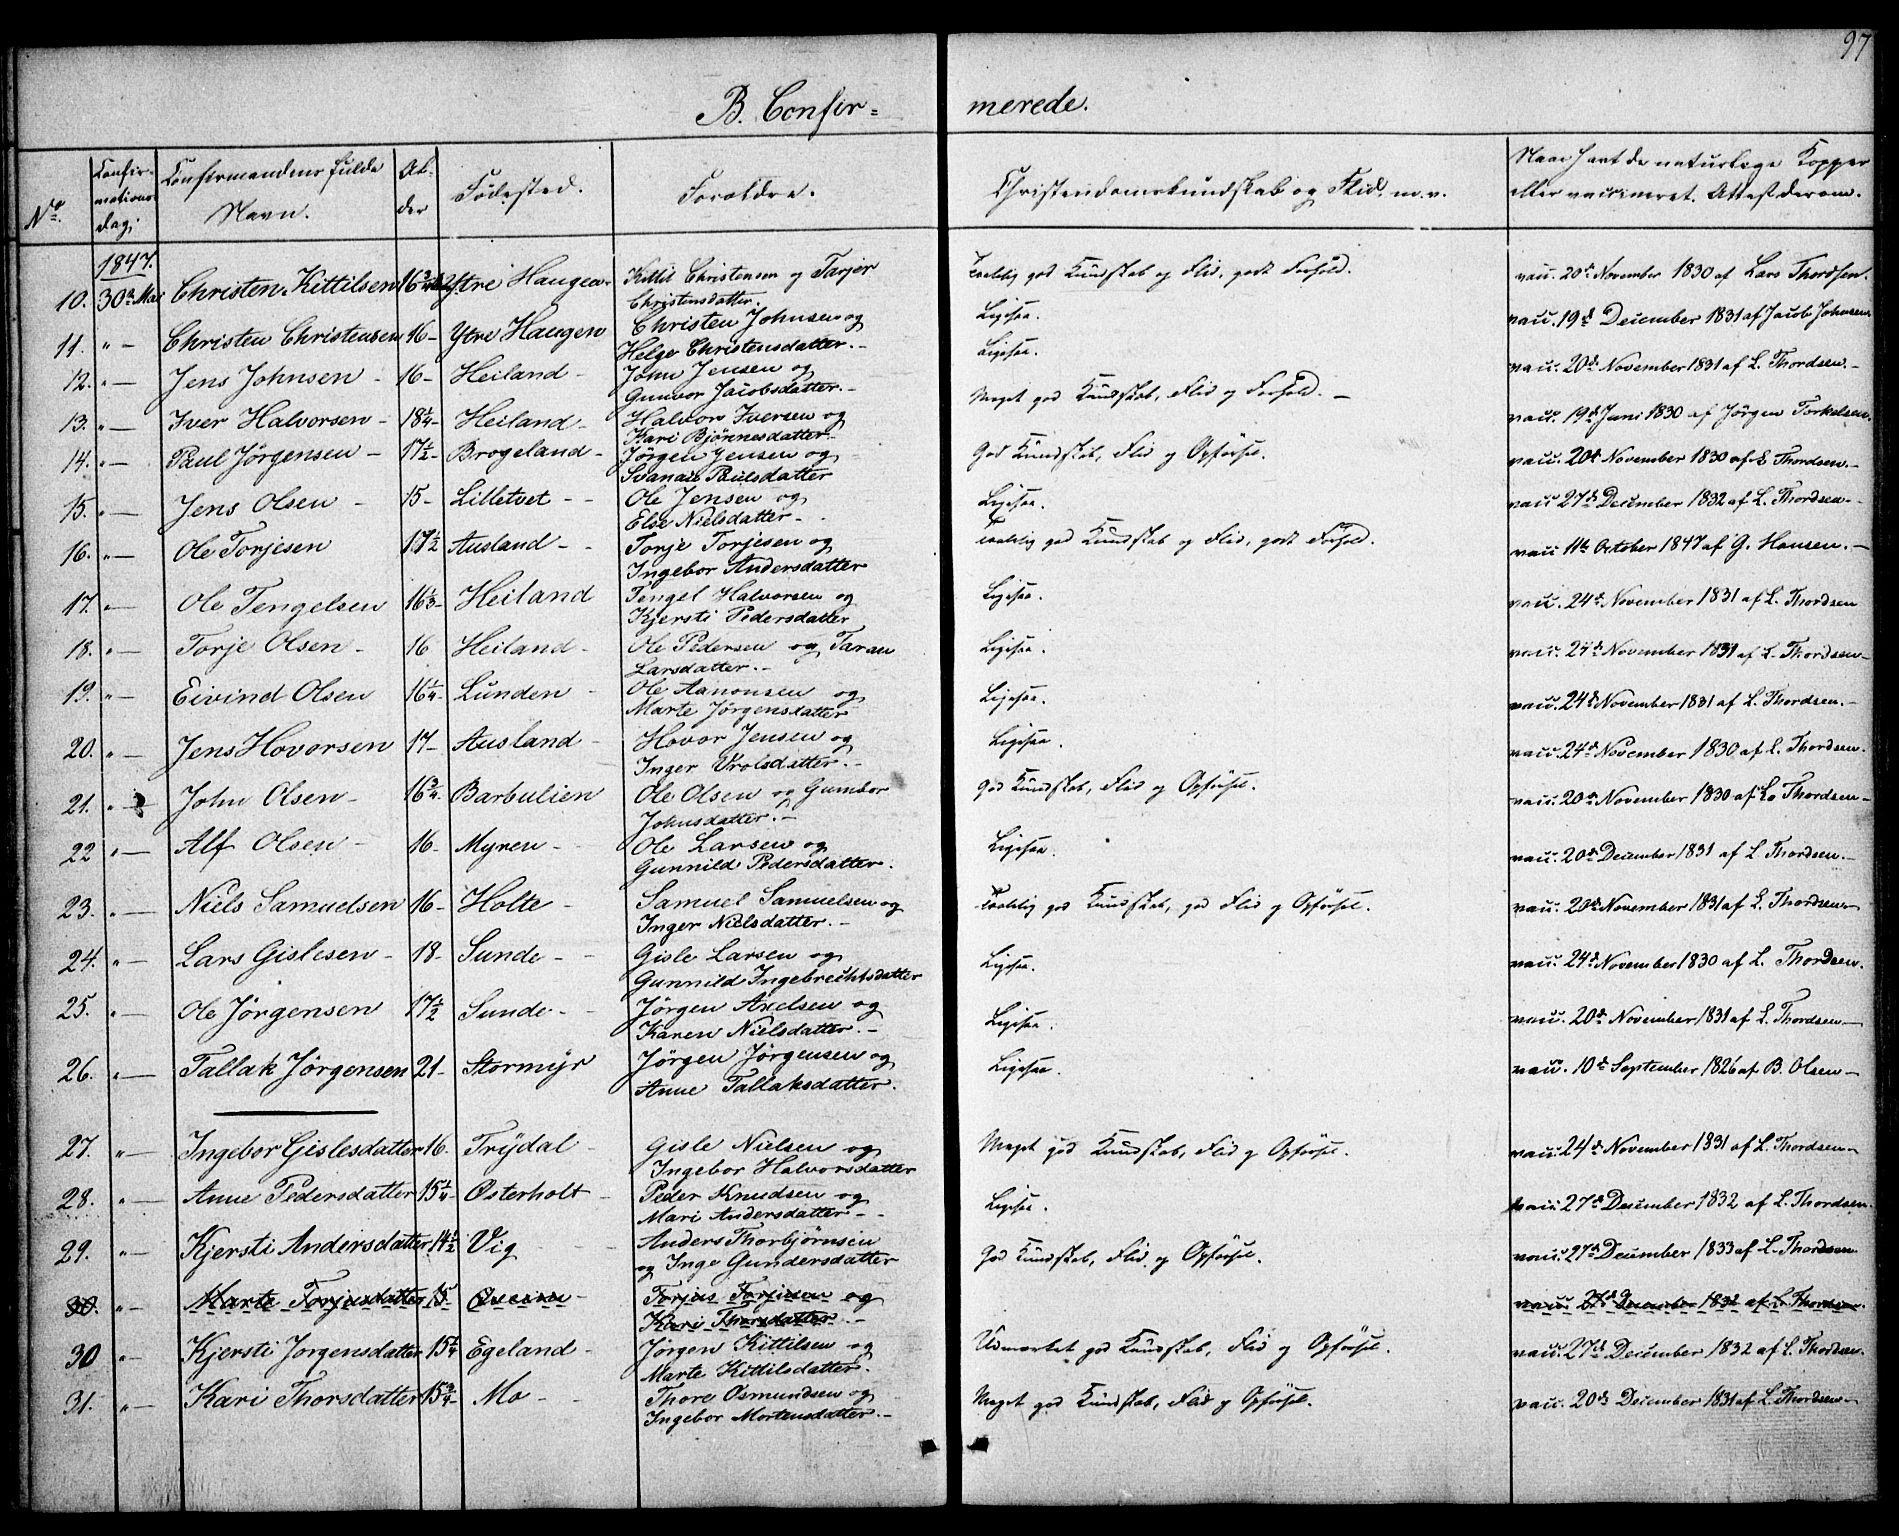 97
B. Confir= merede.
No. Confirmations dag; Confirmandens fulde Navn. Alder Fødested. Forældre. Christendomskundskab og Flid, m.v. Naar havt de naturlige Kopper eller vaccineret. Attest derom.
1847.
10. 30te Mai Christen Kittilsen 16 3/4 Ytre Haugen Kittil Christensen og Tarjer Christensdatter. Taalelig god Kundskab og Flid, godt Forhold. vacc. 20de November 1830 af Lars Thordsen.
11. " — Christen Christensen 16 - Ytre Haugen Christen Johnsen og Helge Christensdatter. - Ligesaa. vacc. 19de December 1831 af Jacob Johnsen.
12. " — Jens Johnsen - 16 - Heiland - John Jensen og Gunvor Jacobsdatter. - Ligesaa. vacc. 20de November 1831 af L. Thordsen. -
13. " — Iver Halvorsen - 18 1/4 - Heiland - Halvor Iversen og Kari Bjønnesdatter. Meget god Kundskab, Flid og Forhold. - vacc. 19de Juni 1830 af Jörgen Torkelsen.
14. " — Paul Jörgensen - 17 1/2 - Brogeland - Jörgen Jensen og Svanau Paulsdatter God Kundskab, Flid og Opførsel. vacc. 20de November 1830 af L Thordsen. -
15. " — Jens Olsen - 15 - Lilletvet - - Ole Jensen og Else Nielsdatter - Ligesaa. vacc. 27de December 1832 af L. Thordsen -
16. " — Ole Torjesen 17 1/2 Ausland - - Torje Torjesen og Ingebor Andersdatter Taalelig god Kundskab og Flid, godt Forhold. vacc 11te October 1847 af G. Hansen. -
17. " — Ole Tengelsen 16 1/3 - Heiland Tengel Halvorsen og Kjersti Pedersdatter Ligesaa. vacc. 24de November 1831 af L. Thordsen
18. " — Torje Olsen - 16 Heiland - Ole Pedersen og Taran Larsdatter. - Ligesaa. vacc. 24de November 1831 af L. Thordsen -
19. " — Eivind Olsen 16 1/4 - Lunden - Ole Aanonsen og Marte Jörgensdatter Ligesaa. vacc. 24de November 1831 af L. Thordsen. -
20. " — Jens Hovorsen 17 - Ausland - Hovor Jensen og Inger Vrolsdatter. - Ligesaa. vacc. 24de November 1830 af L. Thordsen.
21. " — John Olsen - 16 3/4 Barbulien Ole Olsen og Gumbor Johnsdatter. - God Kundskab, Flid og Opførsel. vacc. 20de November 1830 af L. Thordsen -
22 " — Alf Olsen - 16 - Myren - - Ole Larsen og Gunnild Pedersdatter. Ligesaa. vacc. 20de December 1831 af L Thordsen. -
23. " — Niels Samuelsen 16 - Holte - Samuel Samuelsen og Inger Nielsdatter. - Taalelig god Kundskab, god Flid og Opførsel. vacc. 20de November 1831 af L. Thordsen. -
24. " — Lars Gislesen - 18 - Sunde - - Gisle Larsen og Gunnild Ingebrechtsdatter Ligesaa. vacc. 24de November 1830 af L. Thordsen.
25. " — Ole Jörgensen 17 1/2 Sunde - - Jörgen Axelsen og Karen Nielsdatter. - Ligesaa. vacc. 20de November 1831 af L. Thordsen -
26. " — Tallak Jörgensen 21 - Stormyr Jörgen Jörgensen og Anne Tallaksdatter. Ligesaa. vacc. 10de September 1826 af B. Olsen -
27. " — Ingebor Gislesdatter 16. Trydal - Gisle Nielsen og Ingebor Halvorsdatter Meget god Kundskab, Flid og Opførsel. vacc. 24de November 1831 af L. Thordsen -
28. " — Anne Pedersdatter 15 1/4 - Österholt - Peder Knudsen og Mari Andersdatter - - Ligesaa. vacc. 27de December 1832 af L. Thordsen.
29. " — Kjersti Andersdatter 14 1/2 Vig - - Anders Thorbjørnsen og Inge Gundersdatter God Kundskab, Flid og Opførsel. vacc. 27de December 1833 af L. Thordsen
30. " — Marte Torjusdatter 15 Torjus Torjusen og Kari Thorsdatter. - vacc. 27de December 1832 af L. Thordsen.
30 " — Kjersti Jörgensdatter 15 1/4 Egeland - Jörgen Kittilsen og Marte Kittilsdatter. - Udmærket god Kundskab, Flid og Opførsel. vacc. 27de December 1832 af L. Thordsen.
31. " — Kari Thorsdatter 15 3/4 - Mo - Thore Osmundsen og Ingebor Mortensdatter. - Meget god Kundskab, Flid og Opførsel. vacc. 20de December 1831 af L. Thordsen -